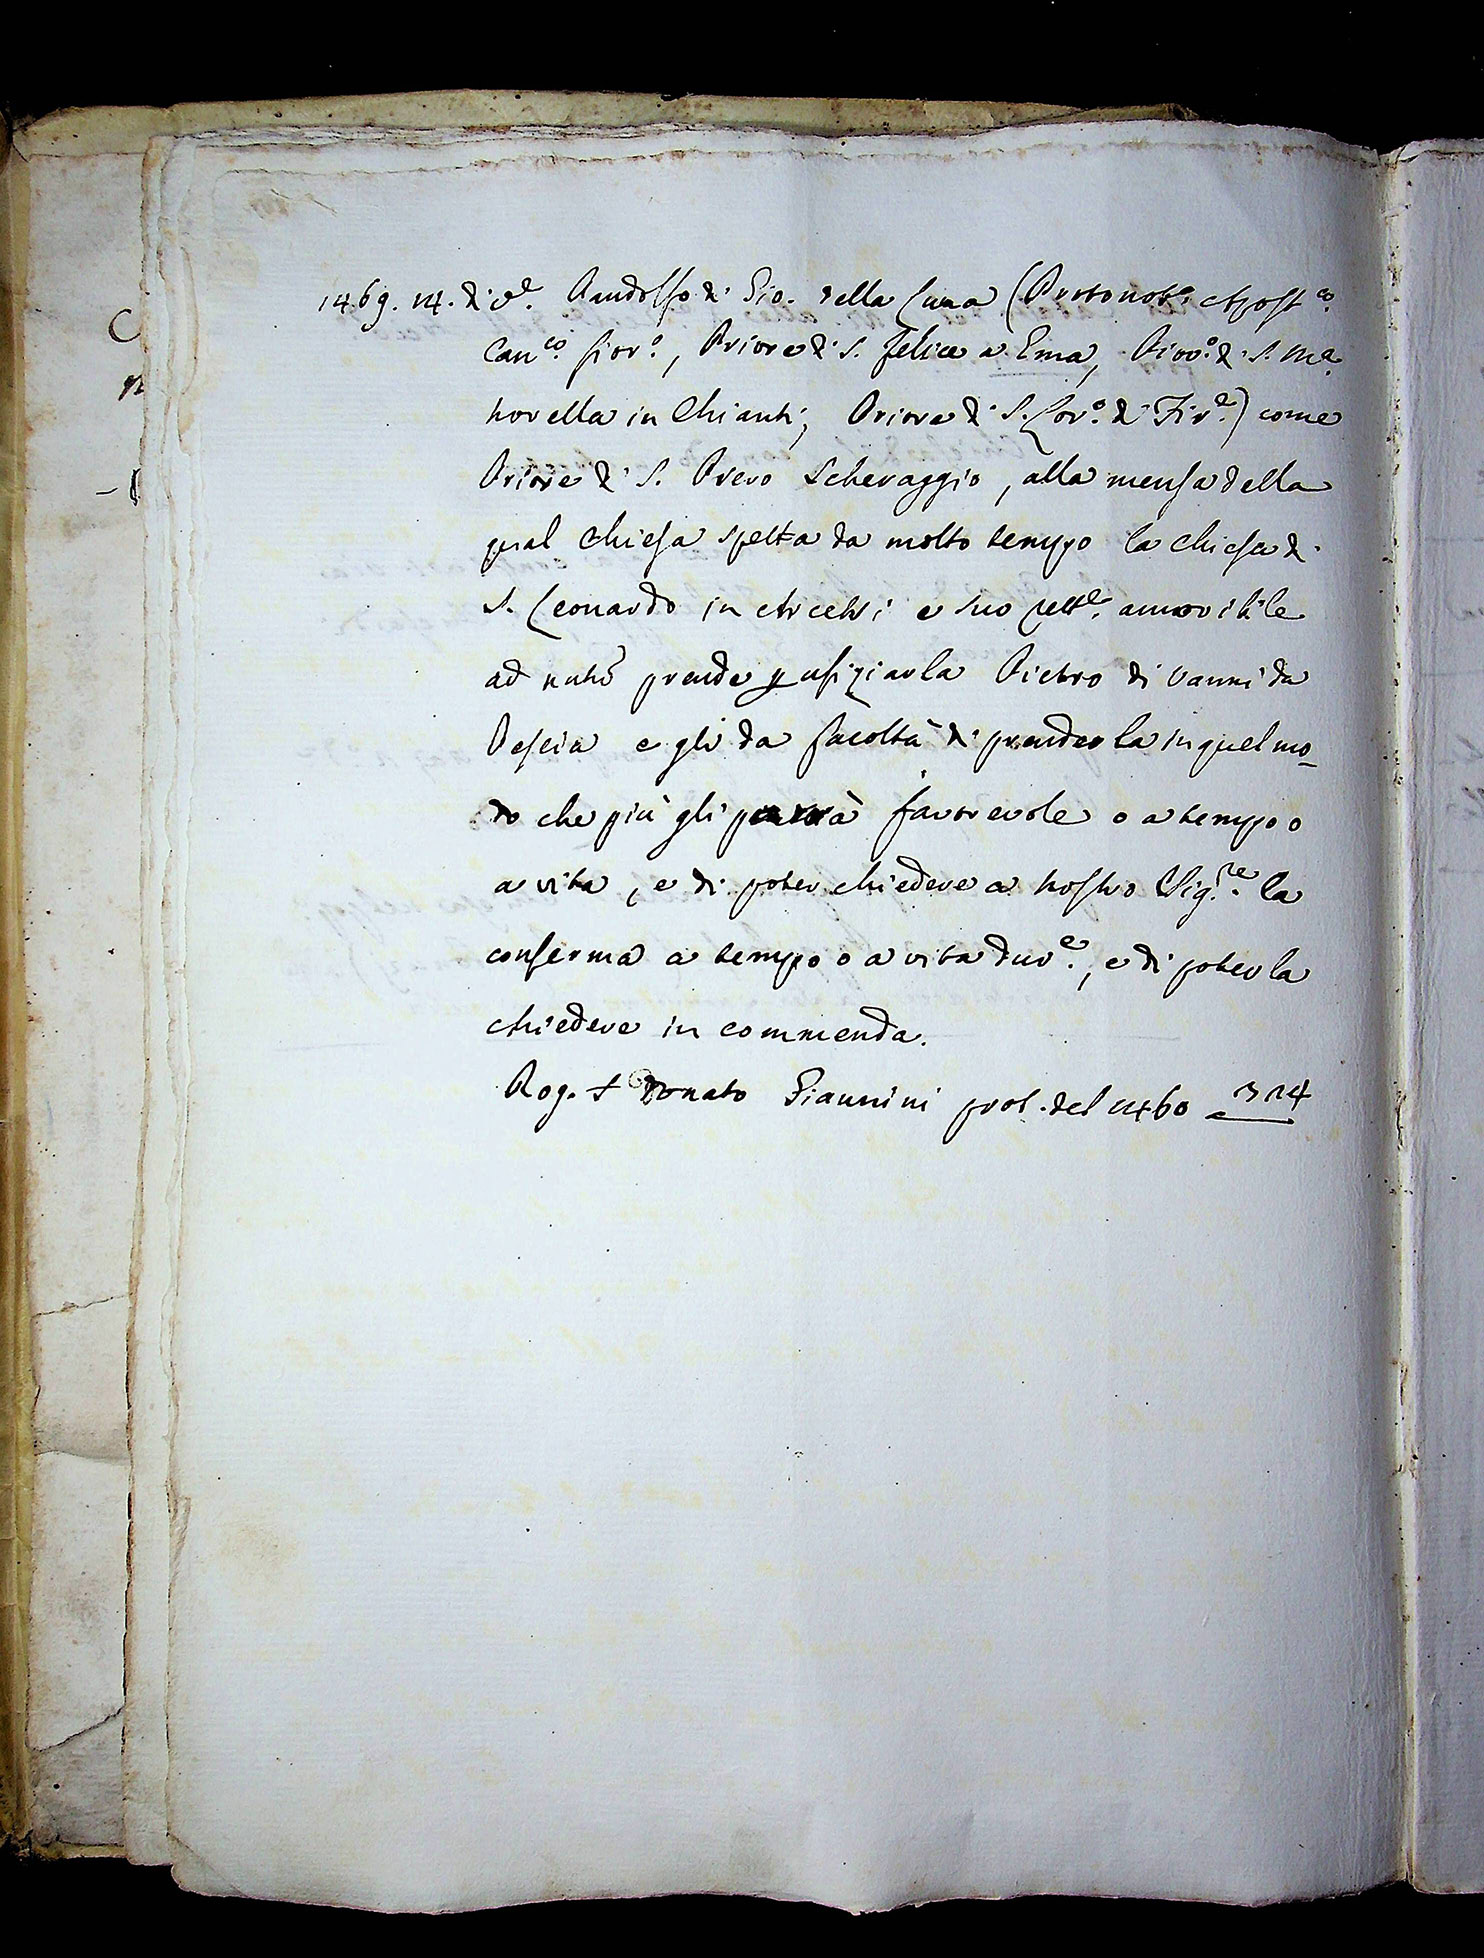 1469. 14. di 9e. Pandolfo di Gio. della Luna (Protonoto. Apostco.
Canco. fioro., Priore di S. felice a Ema, Piovo. di S. Ma.
novella in Chianti, Priore di S. Loro. di Fire.) come
Priore di S. Piero Scheraggio, alla mensa della
qual chiesa spetta da molto tempo la chiesa di
S. Leonardo in Arcetri e suo Rette. amovibile
ad nutũ prende p ufiziarla Pietro di Vanni da
Pescia e gli da facoltà di prenderla in quel mo-
do che più gli parrà favorevole o a tempo o
a vita, e di poter chiedere a nostro Sigre. la
conferma a tempo o a vita dure., e di poterla
chiedere in commenda.
Rog. S Donato Giannini prot. del 1460 314